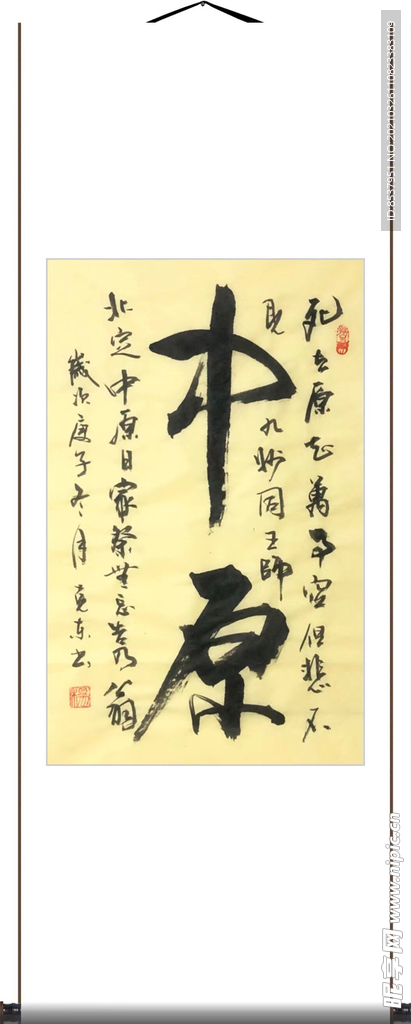 死去原知萬事空但悲不
見九州同王師
中原
北定中原日家祭無忘告乃翁
歲次庚子冬月克东书
昵享网 www.nipic.cn